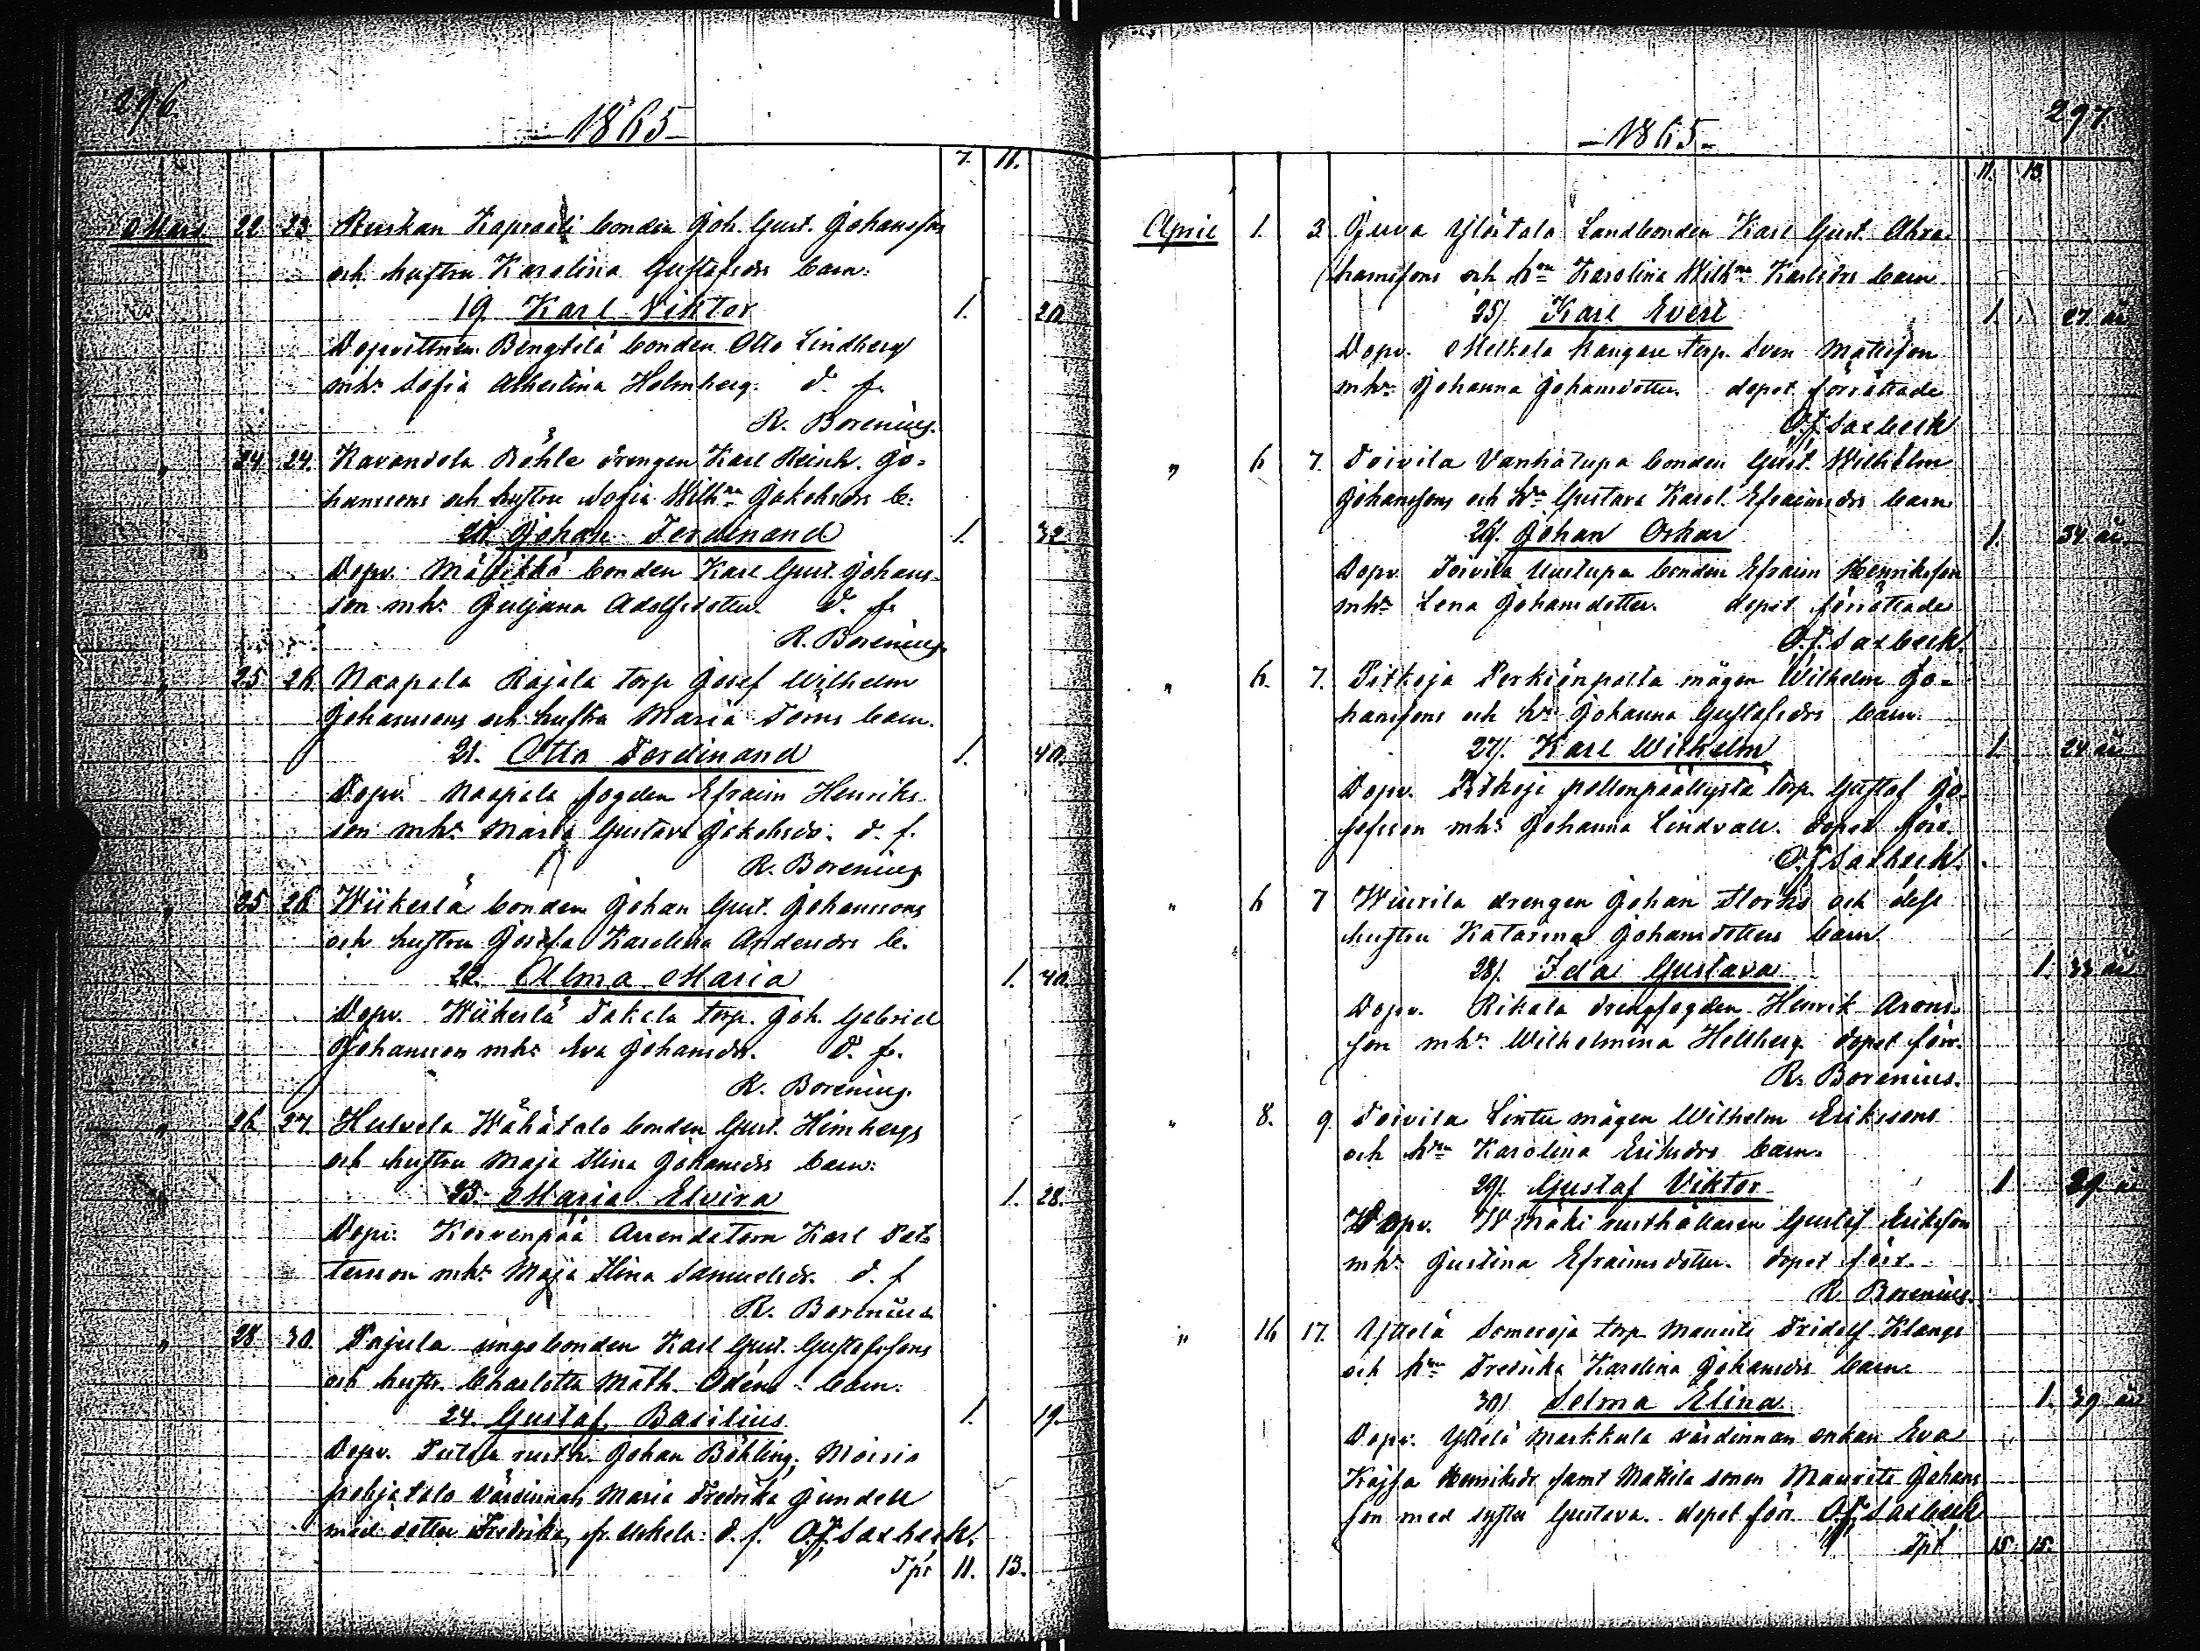 296
-1865-
7. 11.
Mars 22 23 Ruskan Kapraali bonden Joh. Gust. Johanssons
och hustru Karolina Gustafsdrs barn:
19. Karl Viktor 1. 20.
Dopvittnen Bengtilä bonden Otto Lindberg
mhr Sofia Albertina Holmberg. d. f.
R. Borenius.
" 24 24. Kavandola Böhle drengen Karl Heinr. Jo=
hanssons och hustru Sofia Wilhna Jakobsdrs b:
20. Johan Ferdinand 1. 32.
Dopv. bonden Karl Gust. Johans-
son mhr Juljana Adolfsdotter. d. f.
R. Borenius
" 25 26. Naapala Rajala torp. Josef Wilhelm
Johanssons och hustru Maria Törns barn.
21. Otto Ferdinand 1. 40.
Dopv. Naapala fogden Efraim Henriks-
son mhr Maria Gustava Jakobsdr. d. f.
R. Borenius
" 25 26 Wiikerlä bonden Johan Gust. Johanssons
och hustru Josefa Karolina Andersdrs b.
22. Alma Maria 1. 40.
Dopv. Wiikerlä Takala torp. Joh. Gabriel
Johansson mhr Eva Johansdr. d. f.
R. Borenius.
" 26 27. Hulvela Wähätalo bonden Gust. Heimbergs
och hustru Maja Stina Johansdrs barn:
23. Maria Elvira 1. 28.
Dopv. Korvenpää Arrendatorn Karl Pet-
tersson mhr Maja Stina Samuelsdr. d. f
R. Borenius
" 28 30. Pajula unga bonden Karl Gust. Gustafssons
och hustr. Charlotta Math. Odéns barn.
24. Gustaf Basilius 1. 19.
Dopv. Putala rusth. Johan Böhling, Moisio
pohjatalo värdinnan Maria Fredrika Jundell
med dotter Fredrika, fr. Uskela. d. f. O.F. Saxbeck.
Tpt 11. 13.
297
-1865-
11. 13.
April 1. 3 Juva Ylöstalo Landbonden Karl Gust. Abra-
hamssons och hru Karolina Wilhna Karlsdrs barn
25). Karl Evert 1. 27 år
Dopv. Kangare torp. Sven Matsson
mhr Johanna Johansdotter. dopet förrättade
O.F. Saxbeck
" 6 7. Toivila Vanhatupa bonden Gust. Wilhelm
Johanssons och hru Gustava Karol. Efraimsdrs barn
26). Johan Oskar 1. 34 år
Dopv. Toivila Uustupa bonden Efraim Henriksson
mhr Lena Johansdotter. dopet förrättades
O.F. Saxbeck.
" 6. 7. Pitkoja mågen Wilhelm Jo-
hanssons och hru Johanna Gustafsdrs barn.
27). Karl Wilhelm 1. 24 år
Dopv. Pitkoja torp. Gustaf Jo-
sefsson mhr Johanna Lindvall. dopet förr.
O.F. Saxbeck.
" 6 7 Wiurila drengen Johan Storks och dess
hustru Katarina Johansdotters barn.
28). Ida Gustava 1. 33 år
Dopv. Rikala drengfogden Henrik Arons-
son mhr Wilhelmina Hellberg dopet förr.
R. Borenius.
" 8. 9 Toivila Lintu mågen Wilhelm Erikssons
och hru Karolina Eriksdrs barn.
29). Gustaf Viktor 1 29 å
Dopv. W Mäki rusthållaren Gustaf Eriksson
mhr Justina Efraimsdotter. dopet förr.
R. Borenius.
" 16 17. Yttelä Someroja torp. Maurits Fridolf Klangs
och hru Fredrika Karolina Johansdrs barn.
30) Selma Elina. 1. 39 år
Dopv. Yttelä Markkula värdinnan enkan Eva
Kajsa Henriksdr samt Mattila sonen Maurits Johans
son med syster Gustava. dopet förr. O.F. Saxbeck
Tpt 15. 15.